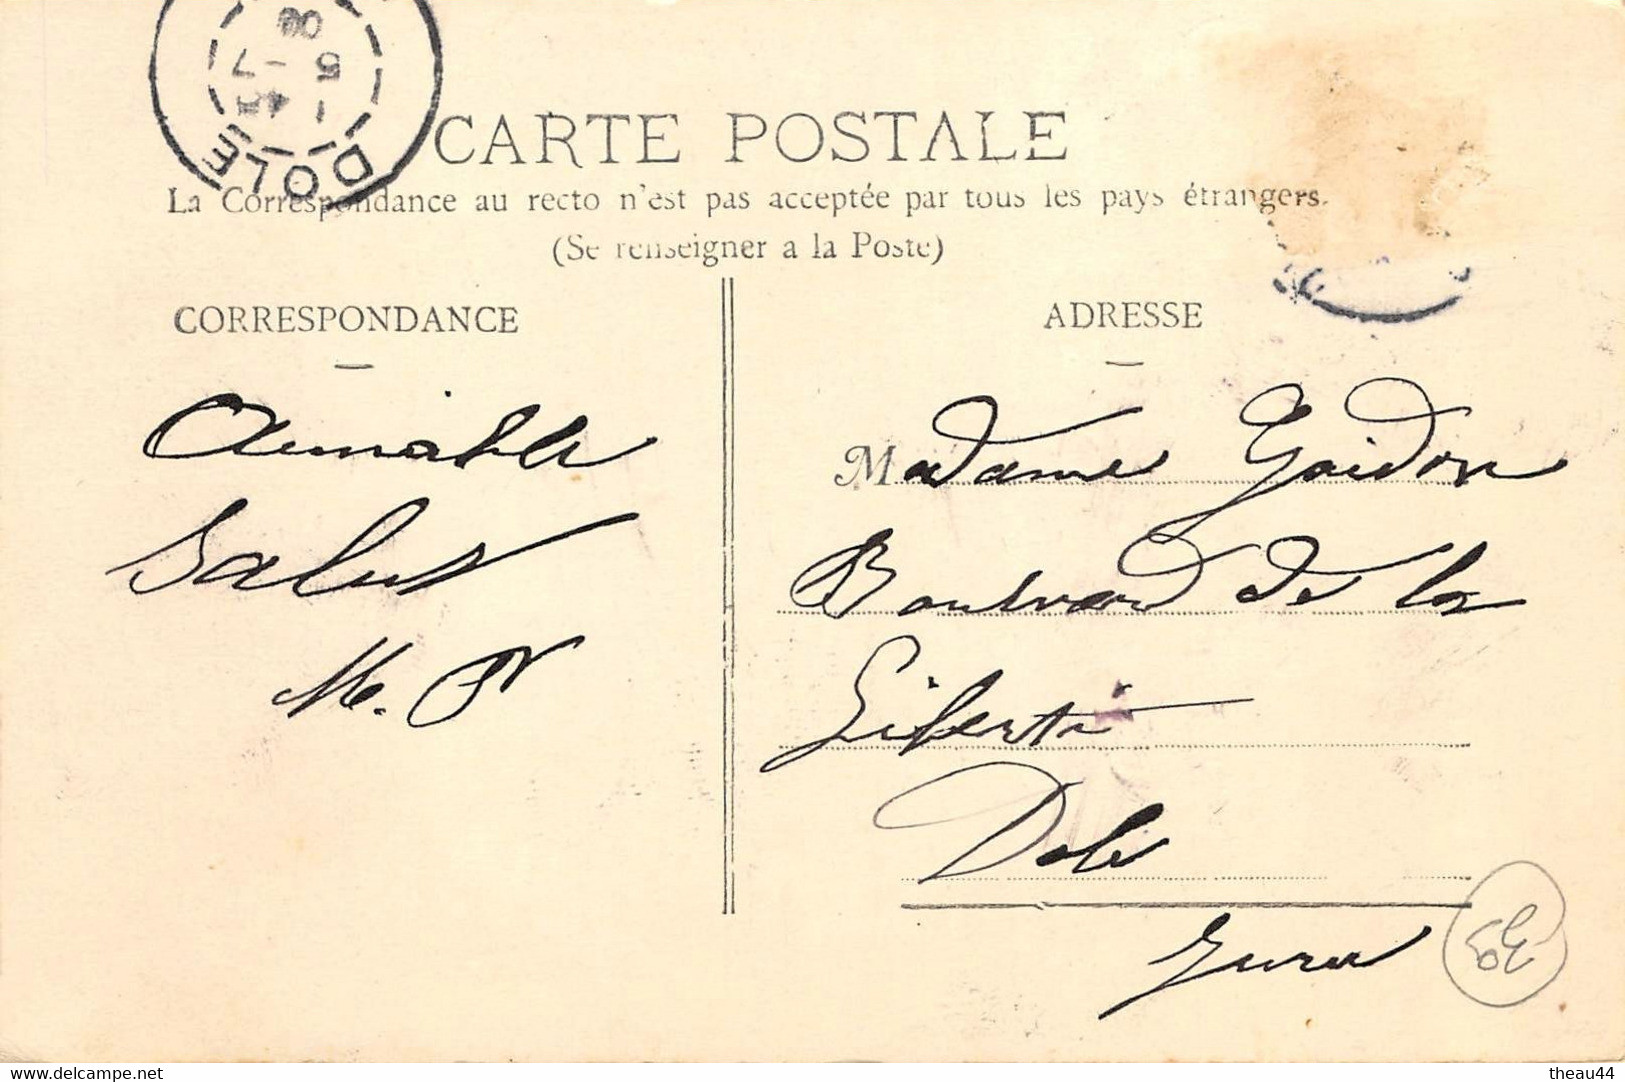 DOLE
5-7
08
CARTE POSTALE
La Correspondance au recto n'est pas acceptée par tous les pays étrangers.
(Se renseigner a la Poste)
CORRESPONDANCE
Aimable
Salut
M. P
ADRESSE
Madame Goidon
Boulevard de la
Liberté
Dole
Jura
www.delcampe.net
theau44